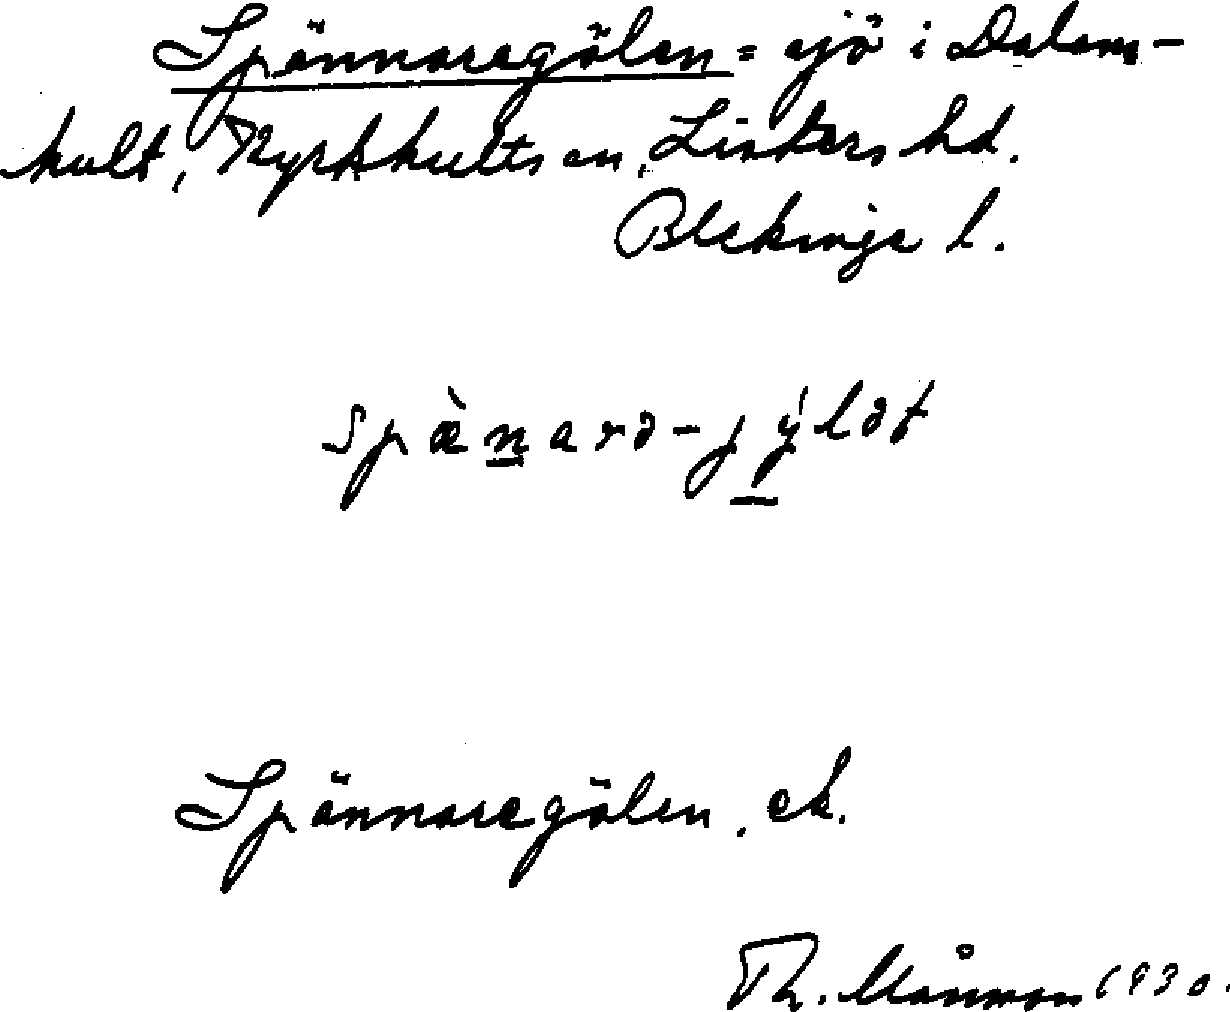 Spännaregölen = sjö i Dalam-
kult, Ryrhkults sn, Listers hd.
Blekinge l.
spæ̀n̲arə-jý̲lət
Spännaregölen, ek.
Th. Månsson 1930.